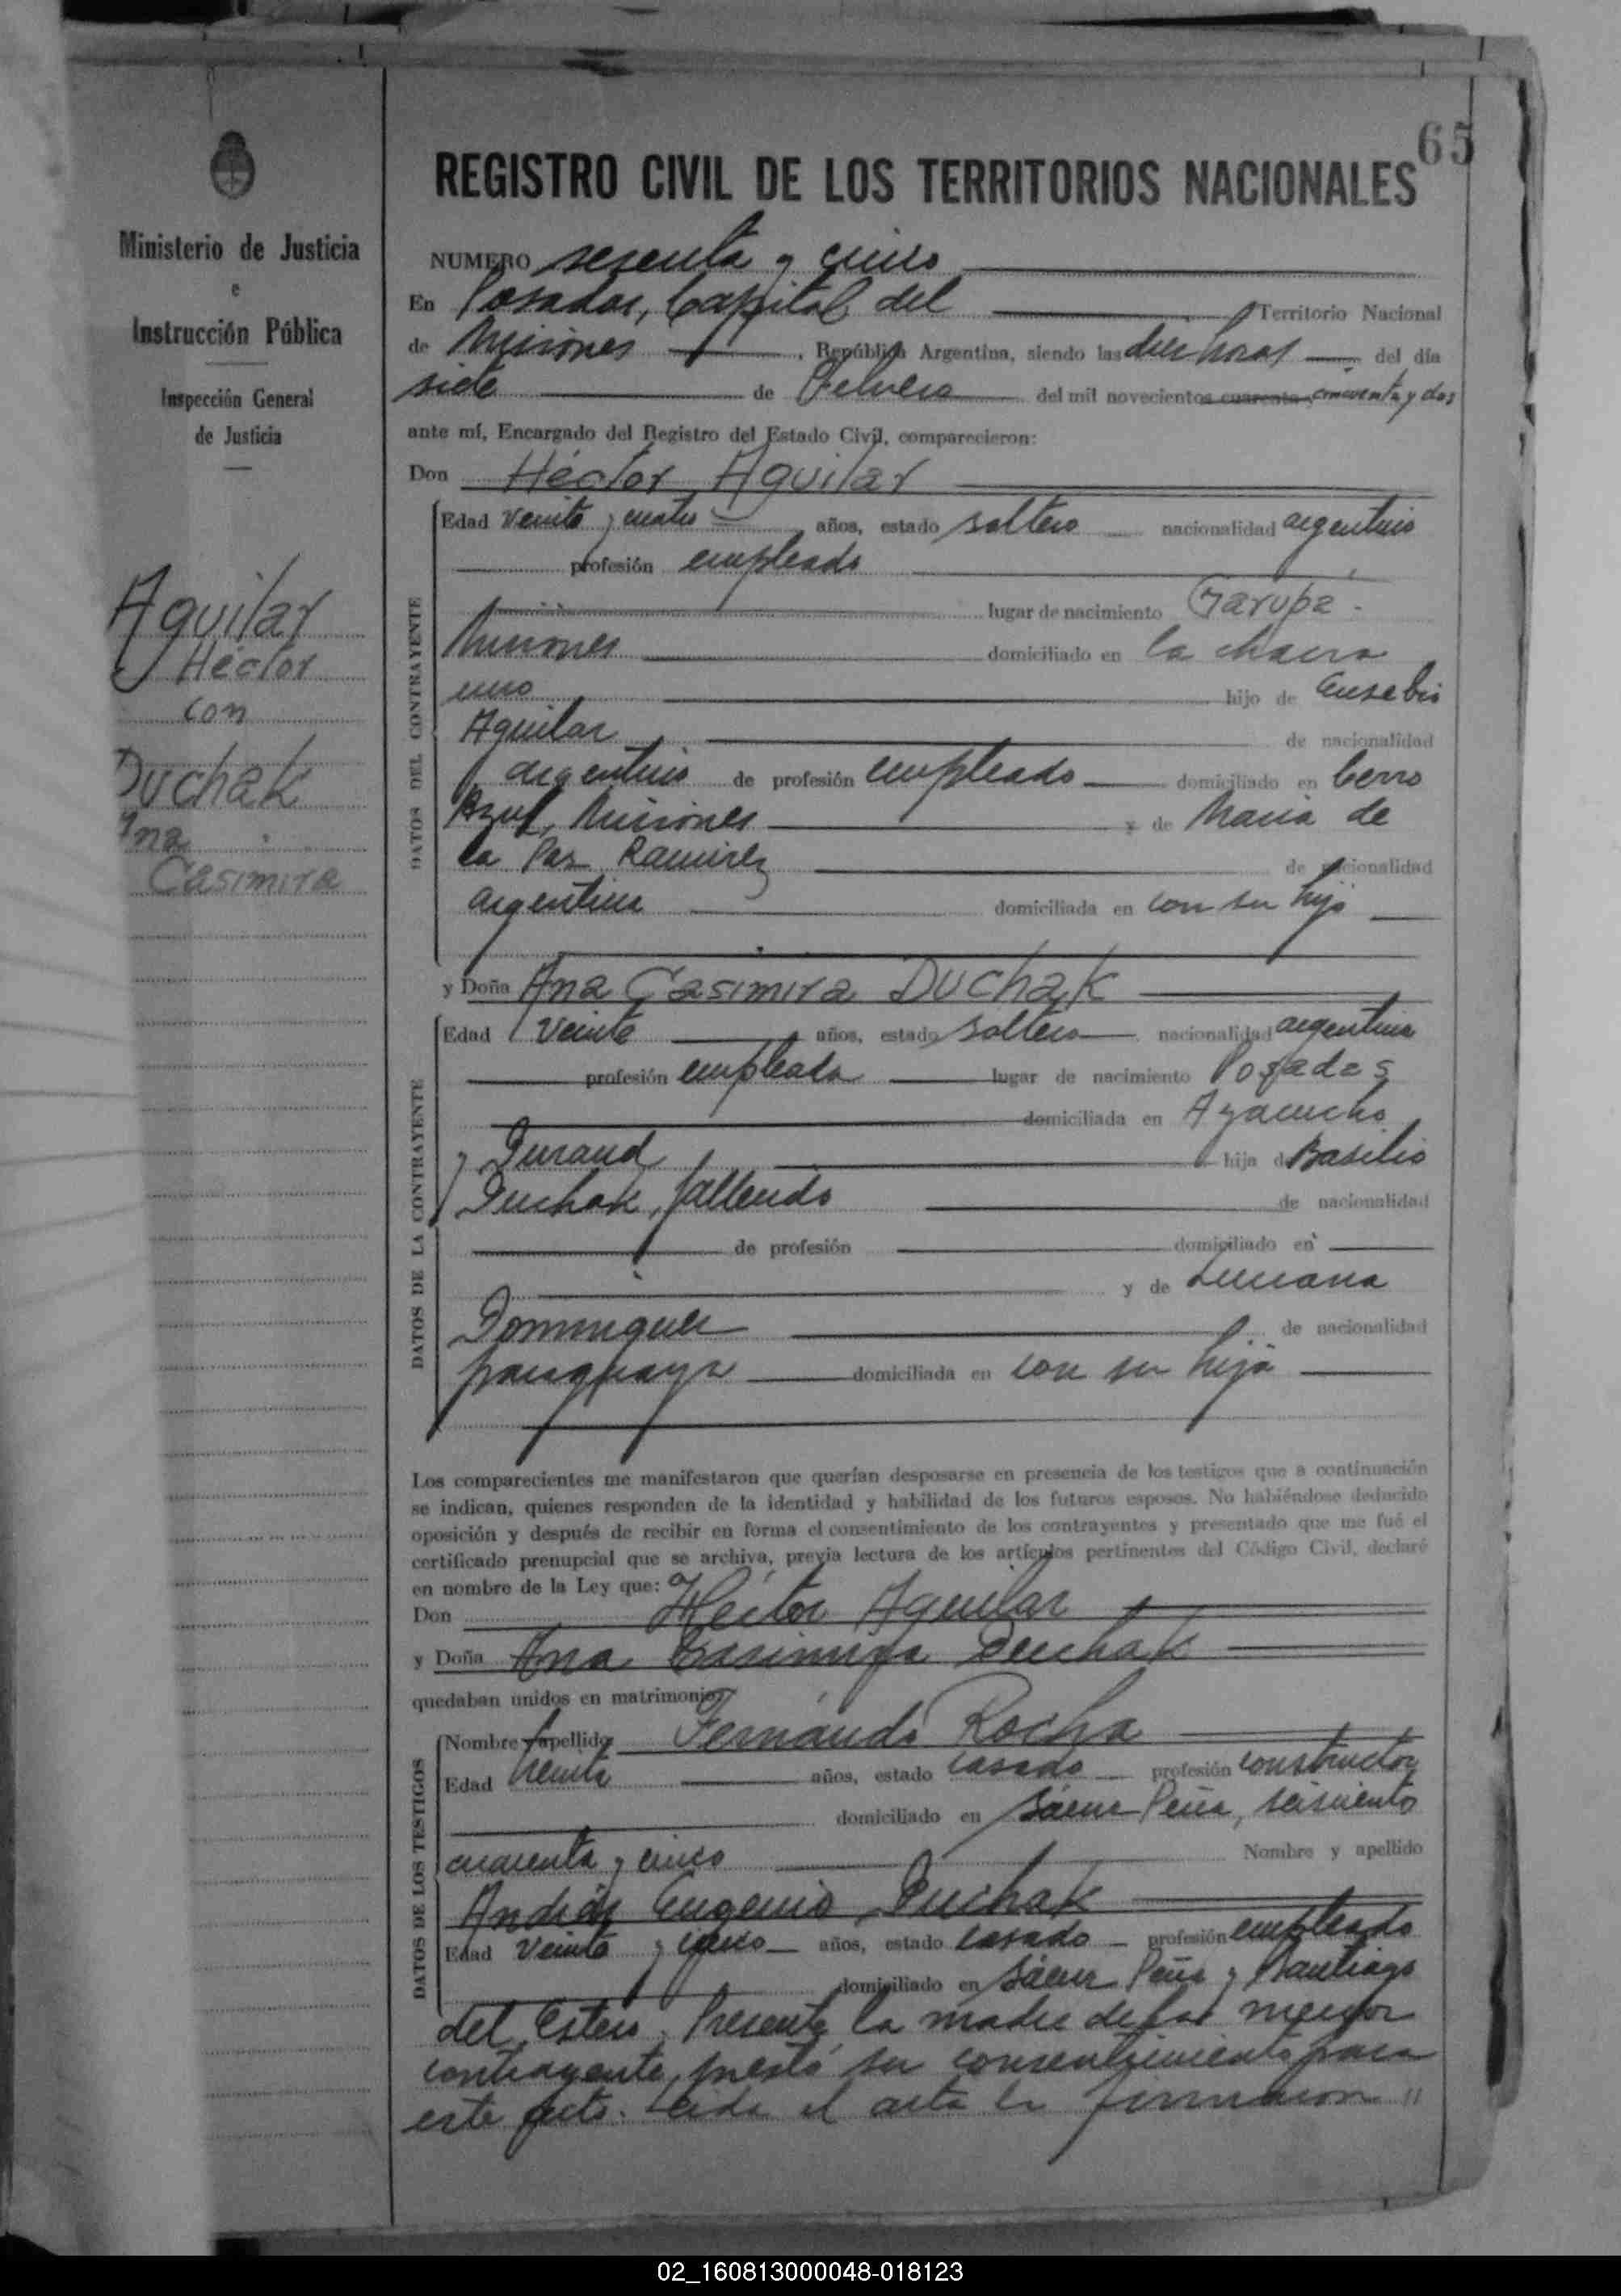 65
REGISTRO CIVIL DE LOS TERRITORIOS NACIONALES
Ministerio de Justicia
e
Instrucción Pública
Inspección General
de Justicia
Aguilar
Héctor
con
Duchak
Ana
Casimira
NUMERO sesenta y cinco
En Posadas, Capital del Territorio Nacional
de Misiones, República Argentina, siendo las diez horas del día
siete de Febrero del mil novecientos cuarenta cincuenta y dos
ante mí, Encargado del Registro del Estado Civil, comparecieron:
Don Héctor Aguilar
DATOS DEL CONTRAYENTE
Edad veinte y cuatro años, estado soltero nacionalidad argentino
profesión empleado
lugar de nacimiento Garupá.
Misiones domiciliado en la chacra
uno hijo de Eusebio
Aguilar de nacionalidad
argentino de profesión empleado domiciliado en Cerro
Azul, Misiones y de Maria de
la Paz Ramirez de nacionalidad
argentina domiciliada en con su hijo
y Doña Ana Casimira Duchak
DATOS DE LA CONTRAYENTE
Edad veinte años, estado soltera nacionalidad argentina
profesión empleada lugar de nacimiento Posadas
domiciliada en Ayacucho
y Durand hija de Basilio
Duchak, fallecido de nacionalidad
de profesión domiciliado en
y de Luciana
Dominguez de nacionalidad
paraguaya domiciliada en con su hija
Los comparecientes me manifestaron que querían desposarse en presencia de los testigos que a continuación
se indican, quienes responden de la identidad y habilidad de los futuros esposos. No habiéndose deducido
oposición y después de recibir en forma el consentimiento de los contrayentes y presentado que me fué el
certificado prenupcial que se archiva, previa lectura de los artículos pertinentes del Código Civil, declaré
en nombre de la Ley que:
Don Héctor Aguilar
y Doña Ana Casimira Duchak
quedaban unidos en matrimonio.
DATOS DE LOS TESTIGOS
Nombre y apellido Fernando Rocha
Edad treinta años, estado casado profesión constructor
domiciliado en Sáenz Peña, seiscientos
cuarenta y cinco Nombre y apellido
Andrés Eugenio Duchak
Edad veinte y cinco años, estado casado profesión empleado
domiciliado en Sáenz Peña y Santiago
del Estero. Presente la madre de la menor
contrayente, prestó su consentimiento para
este acto. Leída el acta la firmaron
02_160813000048-018123